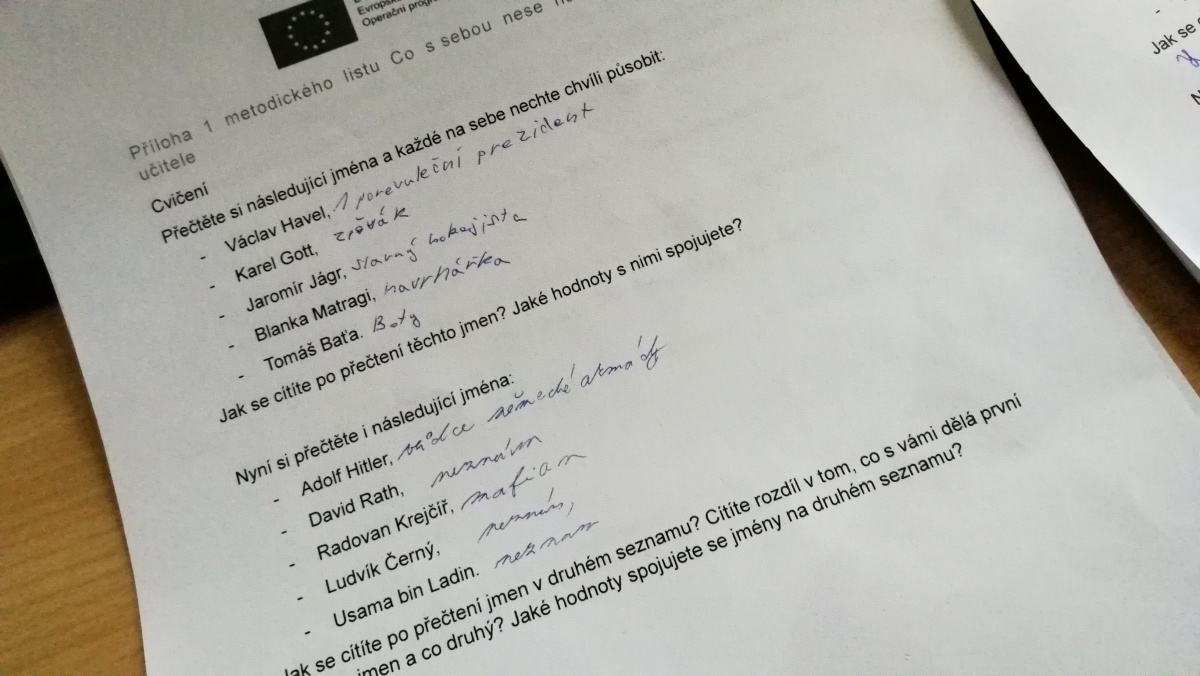 Evropsk
Operační progr
Příloha 1 metodického listu Co s sebou nese
učitele
Cvičení
Přečtěte si následující jména a každé na sebe nechte chvíli působit:
- Václav Havel, 1 porevuleční prezident
- Karel Gott, zpěvák
- Jaromír Jágr, slavný hokejista
- Blanka Matragi, navrhářka
- Tomáš Baťa. Boty
Jak se cítíte po přečtení těchto jmen? Jaké hodnoty s nimi spojujete?
Nyní si přečtěte i následující jména:
- Adolf Hitler, vůdce německé armády
- David Rath, neznám
- Radovan Krejčíř, mafian
- Ludvík Černý, neznám,
- Usama bin Ladin. neznam
Jak se cítíte po přečtení jmen v druhém seznamu? Cítíte rozdíl v tom, co s vámi dělá první
jmen a co druhý? Jaké hodnoty spojujete se jmény na druhém seznamu?
Jak se